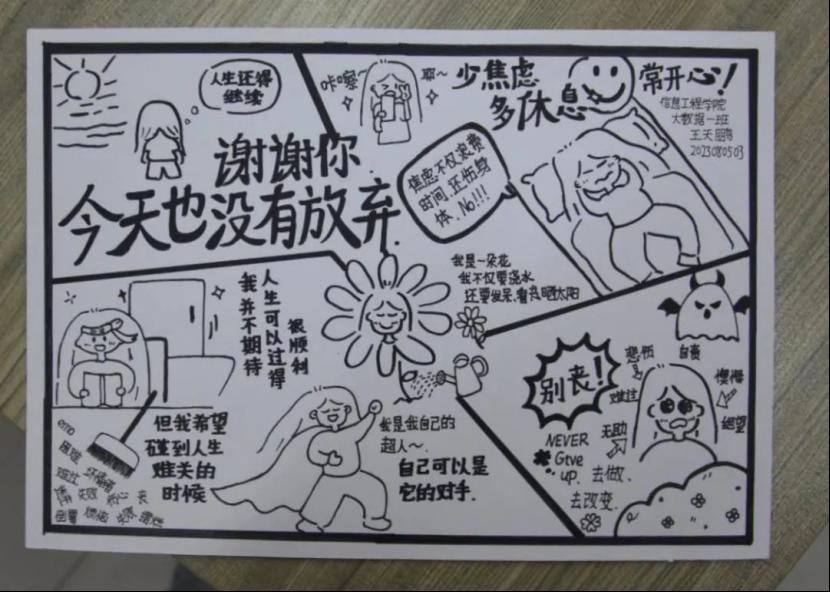 人生还得
继续
谢谢你
今天也没有放弃.
咔嚓~
耶~
少焦虑
多休息
常开心!
信息工程学院
大数据一班
王天鹏
2023080503
焦虑不仅浪费
时间,还伤身
体.No!!!
我是一朵花
我不仅要浇水
还要发呆,看鸟晒太阳
人生可以过得
很顺利
我并不期待
但我希望
碰到人生
难关的
时候
emo
困难
难过
坏情绪
失败
烦恼
我是我自己的
超人~.
自己可以是
它的对手.
别丧!
NEVER
Give
up.
去做.
去改变.
悲伤
难过
无助
自责
懊悔
绝望